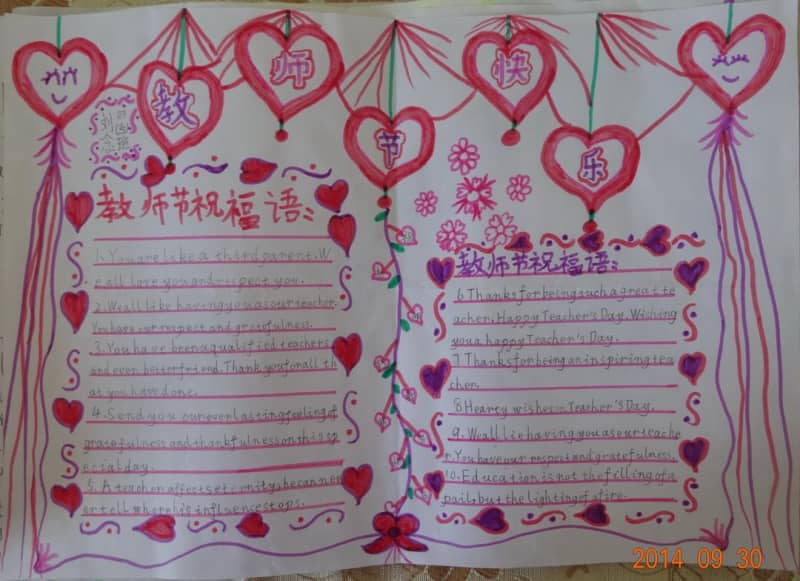 教师节快乐
刘念
教师节祝福语:
1. You are like a third parent. W
e all love you and respect you.
2. We all like having you as our teacher.
You have our respect and gratefulness.
3. You have been a qualified teachers
and even better friend. Thank you for all th
at you have done.
4. Send you our everlasting feeling of
gratefulness and thankfulness on this sp
ecial day.
5. A teacher affects eternity, he can nev
er tell where his influence stops.
教师节祝福语:
6. Thanks for being such a great te
acher. Happy Teacher's Day. Wishing
you a happy Teacher's Day.
7. Thanks for being an inspiring tea
cher.
8 Hearty wishes on Teacher's Day.
9. We all lie having you as our teache
r. You have our respect and gratefulness.
10. Education is not the filling of a
pail, but the lighting of a fire.
2014 09 30